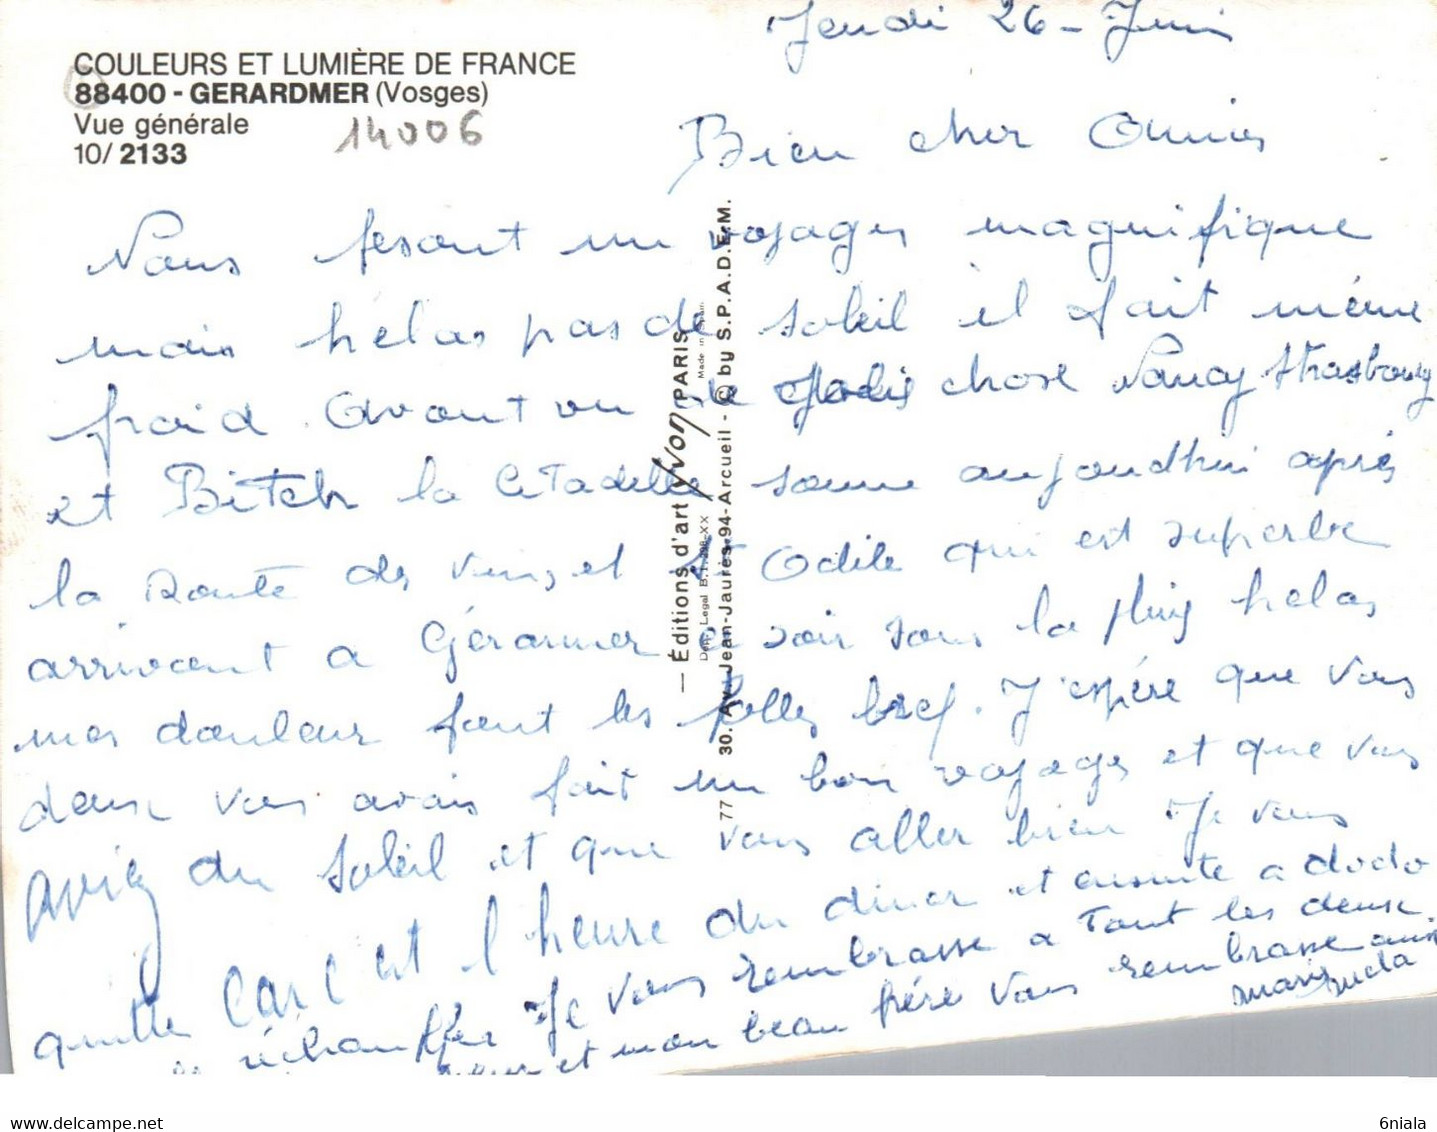 COULEURS ET LUMIÈRE DE FRANCE
88400 - GERARDMER (Vosges)
Vue générale
10/ 2133
14006
Jeudi 26 - Juin
Bien cher Amies
Nous fesont un voyages magnifique
mais hélas pas de soleil il fait même
froid. Avont vu de Jolie chose Nancy Strasbourg
et Bitch la Citadelle somme aujoudhui après
la route des vins et St Odile qui est superbe
arrivont a Gérarmer ce soir sous la pluis helas
mes douleur font les folles bref. J'espére que vous
deux vous avais fait un bon voyages et que vous
aviez du soleil et que vous aller bien Je vous
quitte car c est l heure du diner et ensuite a dodo
réchauffer Je vous rembrasse a tout les deux.
et mon beau frére vous rembrasse aussi
— Éditions d'art Yvon PARIS
Dépt Legal B. 1.298-XX Made in Spain
77 30. Av. Jean-Jaurès-94-Arcueil - © by S.P.A.D.E.M.
www.delcampe.net
6niala